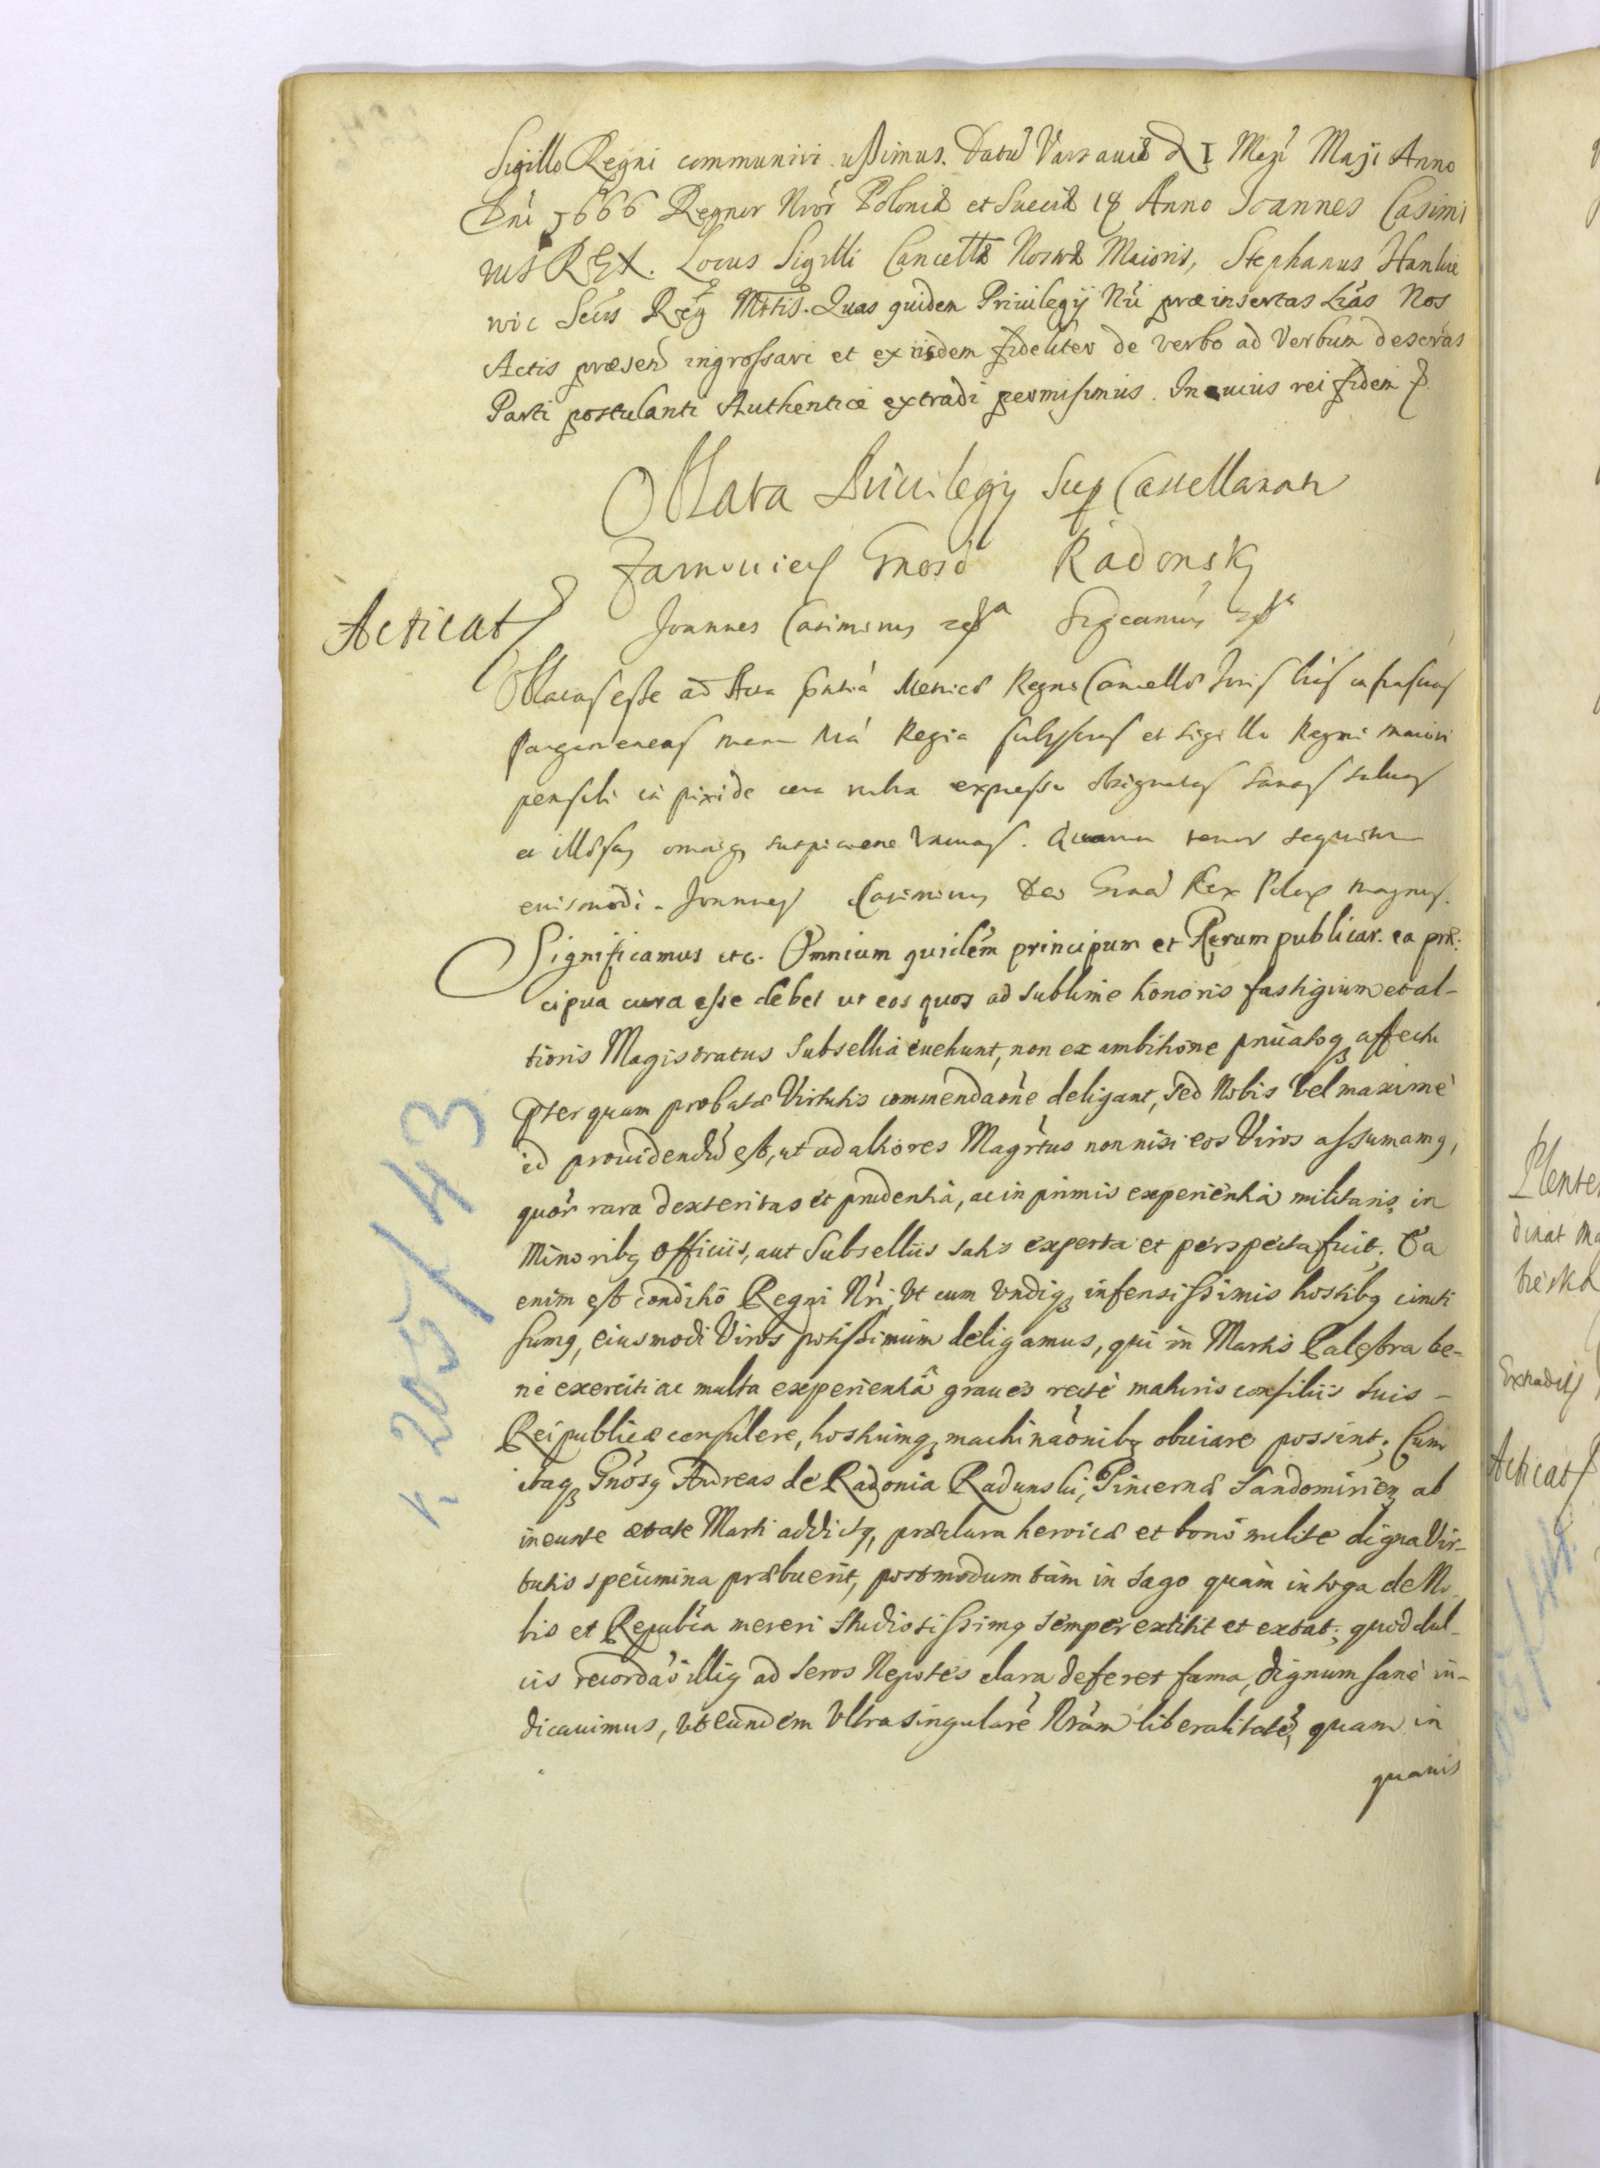 Sigillo Regni communiri iussimus. Datũ Varsaviæ D I Mens Maji Anno
Dni 1666 Regnor Nror Poloniæ et Sueciæ 18 Anno Joannes Casimi
rus REX. Locus Sigilli Cancellæ Nostræ Maioris, Stephanus Hankie
wic Secrs Reg Mttis. Quas quidem Priuilegij Nri præinsertas Lras Nos
Actis præsen ingrossari et ex iisdem fideliter de verbo ad Verbum descras
Parti postulanti Authenticè extradi permisimus. In cuius rei fidem
Oblata Priuilegij Sup Castellanatu
Zarnouien Gnoso Radonsky
Acticat
Joannes Casimirus Sigcamus
Oblatas esse ad Acta Metrices Regni Cancellæ
pargameneas manu Nra Regia subscras et sigillo Regni maiori
pensili in pixide cera rubra expresso obsignatas sanas saluas
et illæsas omniq suspicione vacuas. Quarum tenor sequitur
euismodi. Joannes Casimirus Dei Gratia Rex Polo magnus.
Significamus etc. Omnium quidem principum et Rerum publicar. ea præ:
cipua cura esse debet ut eos quos ad sublime honoris fastigium et al-
tioris Magistratus Subsellia euehunt, non ex ambitione priuatoq affectu
pter quam probatæ Virtutis commendaone deligant, sed Nobis vel maximè
id prouidendũ est, ut ad altiores Magrtus non nisi eos Viros assumamq,
quor rara dexteritas et prudentia, ac in primis experientia militaris in
minoribq officiis, aut Subselliis satis experta et perspecta fuit. Ea
enim est conditio Regni Nri, Vt cum vndiq infensissimis hostibq cincti
sumq, eiusmodi Viros potissimum deligamus, qui in Martis Palestra be-
ne exerciti ac multa experientia graues rectè maturis consiliis suis -
Reipublicæ consulere, hostiumq machinaonibq obuiare possint; Cum
itaq Gnosq Andreas de Radonia Radunski, Pincerna Sandomirien ab
ineunte ætate Marti addictq, præclara heroica et bono milite digna Vir-
tutis specimina præbuerit, postmodum tàm in sago quàm in toga de No
bis et Republca mereri studiosissimq semper extitit et extat; quod dul-
cis recordao illiq ad seros Nepotes clara deferet fama, dignum sanè iu-
dicauimus, Vt eundem Vltra singularé Nram liberalitaté, quam in
quauis
r. 205/43
Plente
dinat Ma
breska
Extradits
Acticat